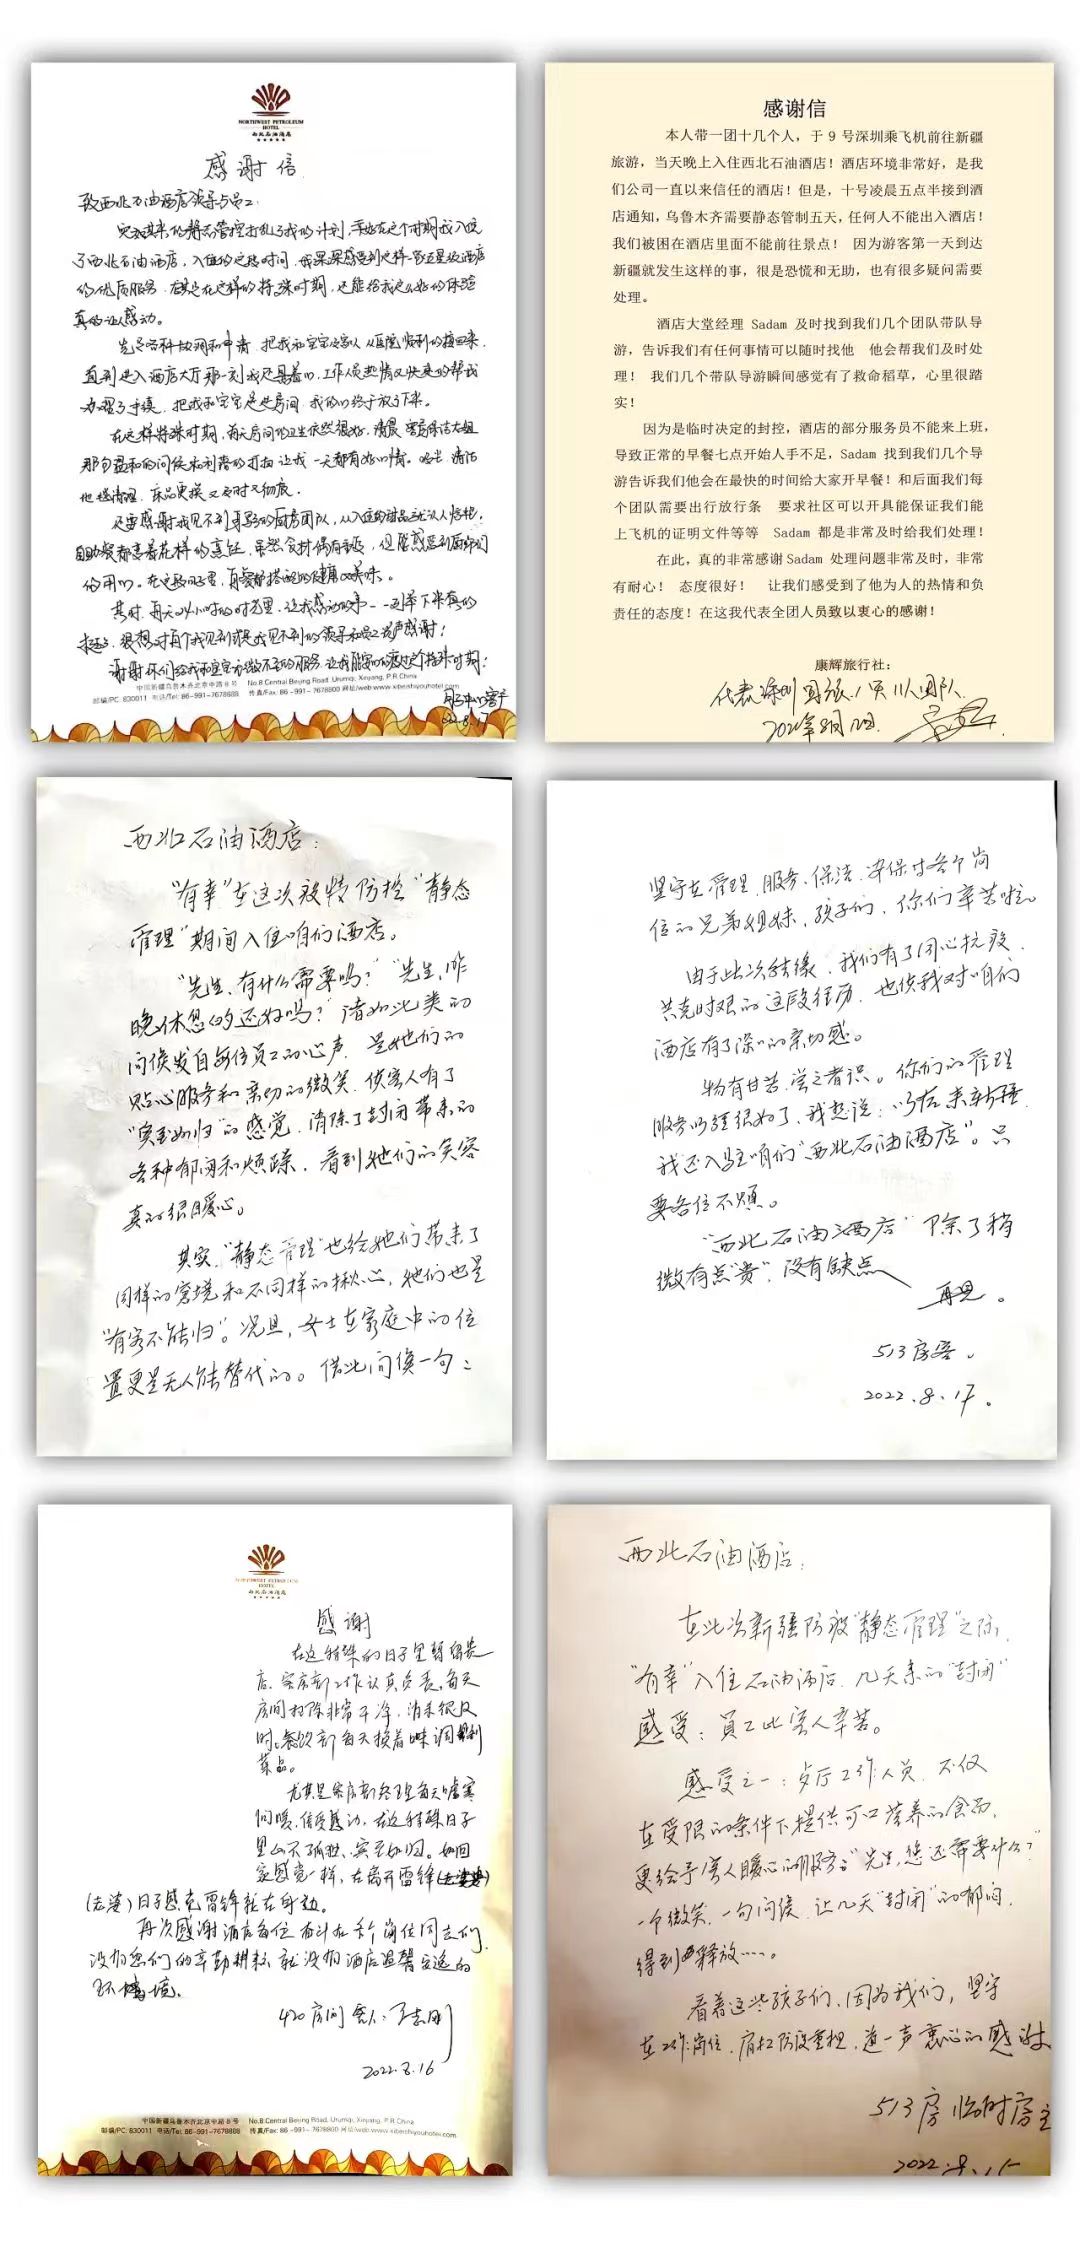 NORTHWEST PETROLEUM
HOTEL
西北石油酒店
感谢信
致西北石油酒店领导与员工:
突如其来的静态管控打乱了我的计划,幸好在这个时期我入住
了西北石油酒店,入住的这段时间,我深深感受到这样一家五星级酒店
的优质服务,尤其是在这样的特殊时期,还能给我这么好的体验
真的让人感动。
先是各种协调和申请,把我和宝宝家人从医院顺利的接回来,
直到进入酒店大厅那一刻我还悬着心,工作人员热情又快速的帮我
办理了手续,把我和宝宝送进房间,我的心终于放了下来。
在这样特殊时期,每天房间的卫生依然很好,清晨客房保洁大姐
那句温和的问候和利落的打扫让我一天都有好心情。
床品更换又及时又彻底。
还要感谢我见不到身影的厨房团队,
在这段日子里,每餐都搭配的健康又美味。
其实,每天24小时的时光里,让我感动的事一一列举下来真的
挺多,很想对每个我见到或是我见不到的领导和员工说声感谢!
谢谢你们给我和宝宝无微不至的服务,让我能安心的度过这个特殊时期!
中国新疆乌鲁木齐北京中路8号 No.8 Central Beijing Road, Urumqi, Xinjiang, P.R.China
邮编/PC: 830011 电话/Tel: 86-991-7678888 传真/Fax: 86-991-7678800 网址/web:www.xibeishiyouhotel.com
2022.8.17
感谢信
本人带一团十几个人,于 9 号深圳乘飞机前往新疆
旅游,当天晚上入住西北石油酒店!酒店环境非常好,是我
们公司一直以来信任的酒店!但是,十号凌晨五点半接到酒
店通知,乌鲁木齐需要静态管制五天,任何人不能出入酒店!
我们被困在酒店里面不能前往景点! 因为游客第一天到达
新疆就发生这样的事,很是恐慌和无助,也有很多疑问需要
处理。
酒店大堂经理 Sadam 及时找到我们几个团队带队导
游,告诉我们有任何事情可以随时找他 他会帮我们及时处
理! 我们几个带队导游瞬间感觉有了救命稻草,心里很踏
实!
因为是临时决定的封控,酒店的部分服务员不能来上班,
导致正常的早餐七点开始人手不足,Sadam 找到我们几个导
游告诉我们他会在最快的时间给大家开早餐!和后面我们每
个团队需要出行放行条 要求社区可以开具能保证我们能
上飞机的证明文件等等 Sadam 都是非常及时给我们处理!
在此,真的非常感谢 Sadam 处理问题非常及时,非常
有耐心! 态度很好! 让我们感受到了他为人的热情和负
责任的态度!在这我代表全团人员致以衷心的感谢!
康辉旅行社:
代表深圳国旅
2022年8月12日
西北石油酒店:
“有幸”在这次疫情防控“静态
管理”期间入住咱们酒店。
“先生,有什么需要吗?”“先生,昨
晚休息的还好吗?”诸如此类的
问候发自每位员工的心声,是她们的
贴心服务和亲切的微笑,使客人有了
“宾至如归”的感觉,消除了封闭带来的
各种郁闷和烦躁,看到她们的笑容
真的很暖心。
其实,“静态管理”也给她们带来了
同样的窘境和不同样的揪心,她们也是
“有家不能归”。况且,女士在家庭中的位
置更是无人能替代的。借此问候一句:
坚守在管理、服务、保洁、安保等各个岗
位的兄弟姐妹、孩子们,你们辛苦啦。
由于此次结缘,我们有了同心抗疫、
共克时艰的这段经历,也使我对咱们
酒店有了深深的亲切感。
物有甘苦,尝之者识。你们的管理
服务已经很好了,我想说:以后来新疆,
我还入驻咱们“西北石油酒店”。只
要各位不烦。
“西北石油酒店”除了稍
微有点“贵”,没有缺点
再见。
513房客。
2022.8.17.
NORTHWEST PETROLEUM
HOTEL
西北石油酒店
感谢
在这特殊的日子里暂留贵
店,客房部工作认真负责,每天
房间打除非常干净,消杀很及
时,餐饮部每天换着味调剂
菜品。
尤其是客房部经理每天嘘寒
问暖,倍受感动,在这特殊日子
里心不孤独,宾至如归,如回
家感觉一样,在离开雷锋
日子感觉雷锋就在身边。
再次感谢酒店每位奋斗在各个岗位同志们,
没有您们的辛勤耕耘就没有酒店温馨舒适的
环境。
420房间客人:
2022.8.16
中国新疆乌鲁木齐北京中路8号 No.8 Central Beijing Road, Urumqi, Xinjiang, P.R.China
邮编/PC: 830011 电话/Tel: 86-991-7678888 传真/Fax: 86-991-7678800 网址/web:www.xibeishiyouhotel.com
西北石油酒店:
在此次新疆防疫“静态管理”之际,
“有幸”入住石油酒店,几天来的“封闭”
感受:员工比客人辛苦。
感受之一:餐厅工作人员,不仅
在受限的条件下提供可口营养的食品,
更给予客人暖心的服务:“先生,您还需要什么?”
一个微笑、一句问候,让几天“封闭”的郁闷,
得到释放……。
看着这些孩子们,因为我们,坚守
在工作岗位,肩扛防疫重担,道一声衷心的感谢
513房临时房主
2022.8.15